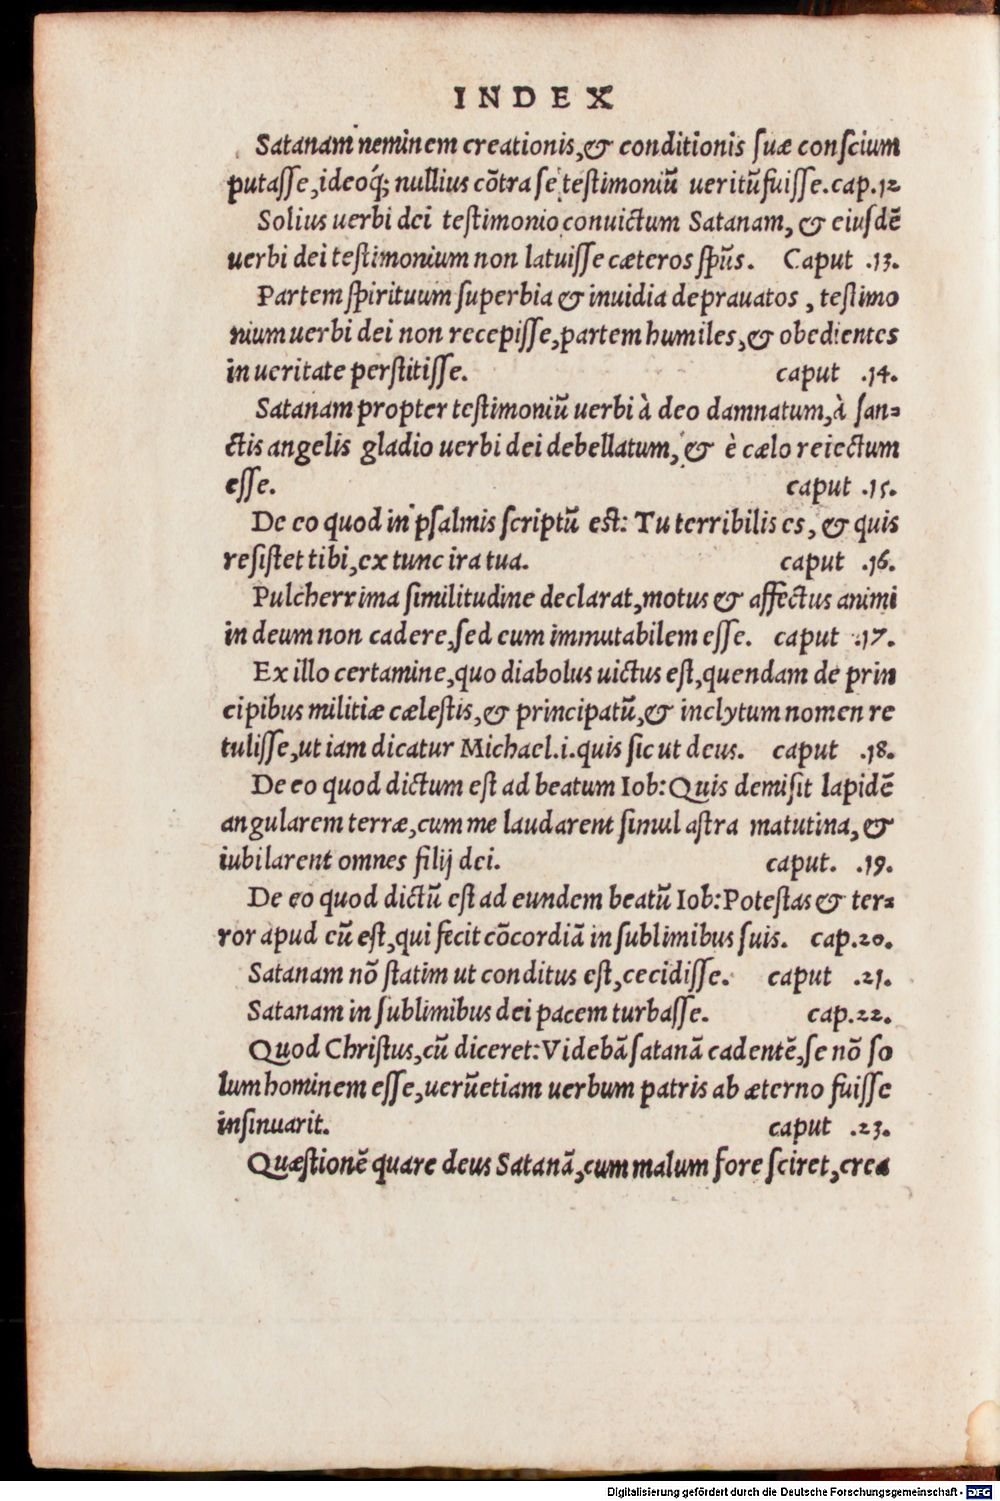 INDEX
Satanam neminem creationis,& conditionis ſuæ conſcium
putaſſe,ideoq́; nullius cõtra ſe teſtimoniũ ueritũ fuiſſe.cap.12
Solius uerbi dei teſtimonio conuictum Satanam, & eiuſdẽ
uerbi dei teſtimonium non latuiſſe cæteros ſpũs. Caput .13.
Partem ſpirituum ſuperbia & inuidia deprauatos , teſtimo
nium uerbi dei non recepiſſe,partem humiles,& obedientes
in ueritate perſtitiſſe. caput .14.
Satanam propter teſtimoniũ uerbi à deo damnatum,à ſan⸗
ctis angelis gladio uerbi dei debellatum, & è cælo reiectum
eſſe. caput .15.
De eo quod in pſalmis ſcriptũ eſt: Tu terribilis es, & quis
reſiſtet tibi,ex tunc ira tua. caput .16.
Pulcherrima ſimilitudine declarat,motus & affectus animi
in deum non cadere,ſed eum immutabilem eſſe. caput .17.
Ex illo certamine,quo diabolus uictus eſt,quendam de prin
cipibus militiæ cæleſtis,& principatũ,& inclytum nomen re
tuliſſe,ut iam dicatur Michael.i.quis ſic ut deus. caput .18.
De eo quod dictum eſt ad beatum Iob:Quis demiſit lapidẽ
angularem terræ,cum me laudarent ſimul aſtra matutina, &
iubilarent omnes filij dei. caput. .19.
De eo quod dictũ eſt ad eundem beatũ Iob:Poteſtas & ter⸗
ror apud eũ eſt,qui fecit cõcordiã in ſublimibus ſuis. cap.20.
Satanam nõ ſtatim ut conditus eſt,cecidiſſe. caput .21.
Satanam in ſublimibus dei pacem turbaſſe. cap.22.
Quod Chriſtus,cũ diceret:Videbã ſatanã cadentẽ,ſe nõ ſo
lum hominem eſſe,uerũetiam uerbum patris ab æterno fuiſſe
inſinuarit. caput .23.
Quæſtionẽ quare deus Satanã,cum malum fore ſciret,crea
Digitalisierung gefördert durch die Deutsche Forschungsgemeinschaft - DFG